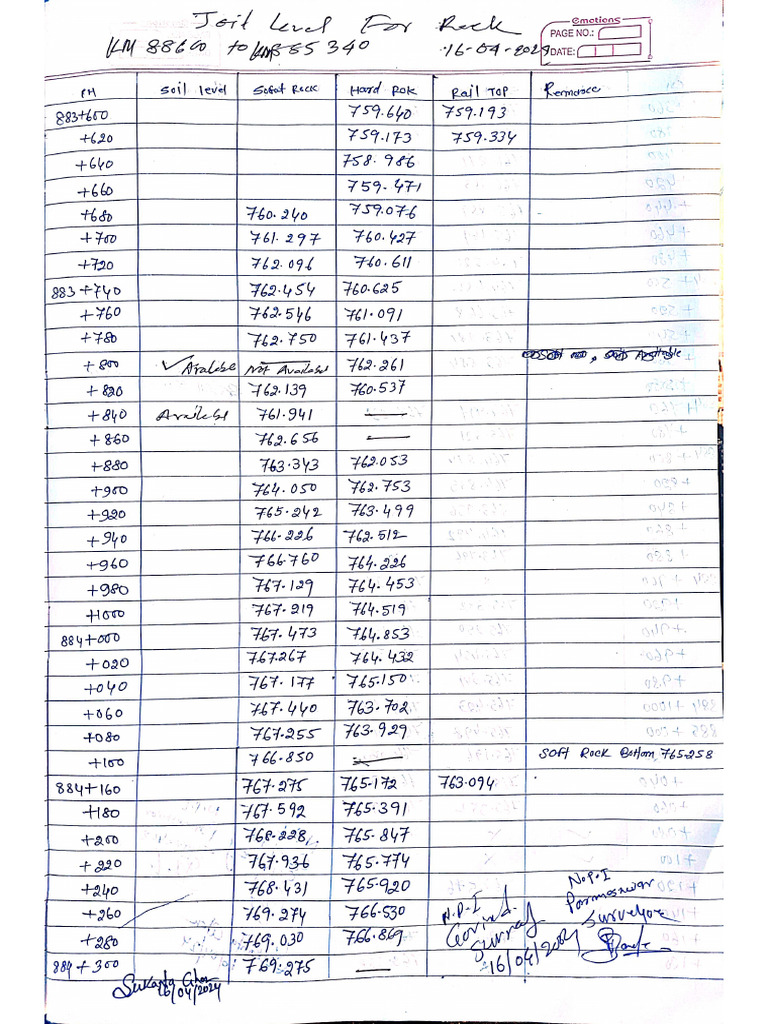 Soil Level For Rock
emotions
PAGE NO.:
DATE:
KM 88600 to KM 885340 16-04-2024
CH Soil level Sofat Rock Hard Rok Rail TOP
883+600 759.640 759.193
+620 759.173 759.334
+640 758.986
+660 759.471
+680 760.240 759.076
+700 761.297 760.427
+720 762.096 760.611
883+740 762.454 760.625
+760 762.546 761.091
+780 762.750 761.437
+800 ✓ Not Available 762.261
+820 762.139 760.537
+840 761.941 —
+860 762.656 —
+880 763.343 762.053
+900 764.050 762.753
+920 765.242 763.499
+940 766.226 762.512
+960 766.760 764.226
+980 767.129 764.453
+1000 767.219 764.519
884+000 767.473 764.853
+020 767.267 764.432
+040 767.177 765.150
+060 767.440 763.702
+080 767.255 763.929
+100 766.850 — Soft Rock Bottom 765.258
884+160 767.275 765.172 763.094
+180 767.592 765.391
+200 768.228 765.847
+220 767.936 765.774
+240 768.431 765.920
+260 769.274 766.530
+280 769.030 766.869
884+300 769.275 —
N.P.I
Govind
Surray
16/04/2024
N.P.I
Parmeswar
Surveyor
Sukanta Ghor
16/04/2024